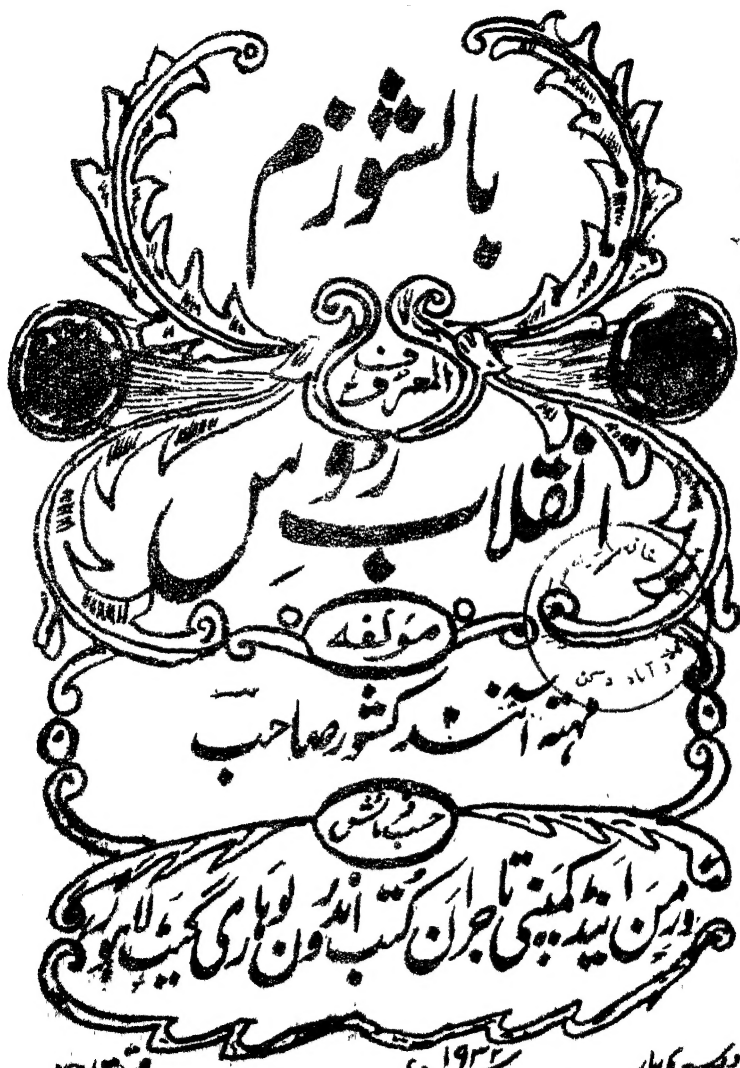 بالشوزم
المعروف
انقلابِ روس
مؤلفہ
مہتہ آنند کشور صاحب
حسب فرمائش
ورمن اینڈ کمپنی تاجران کتب اندرون لوہاری گیٹ لاہور
۱۹۳۲ء